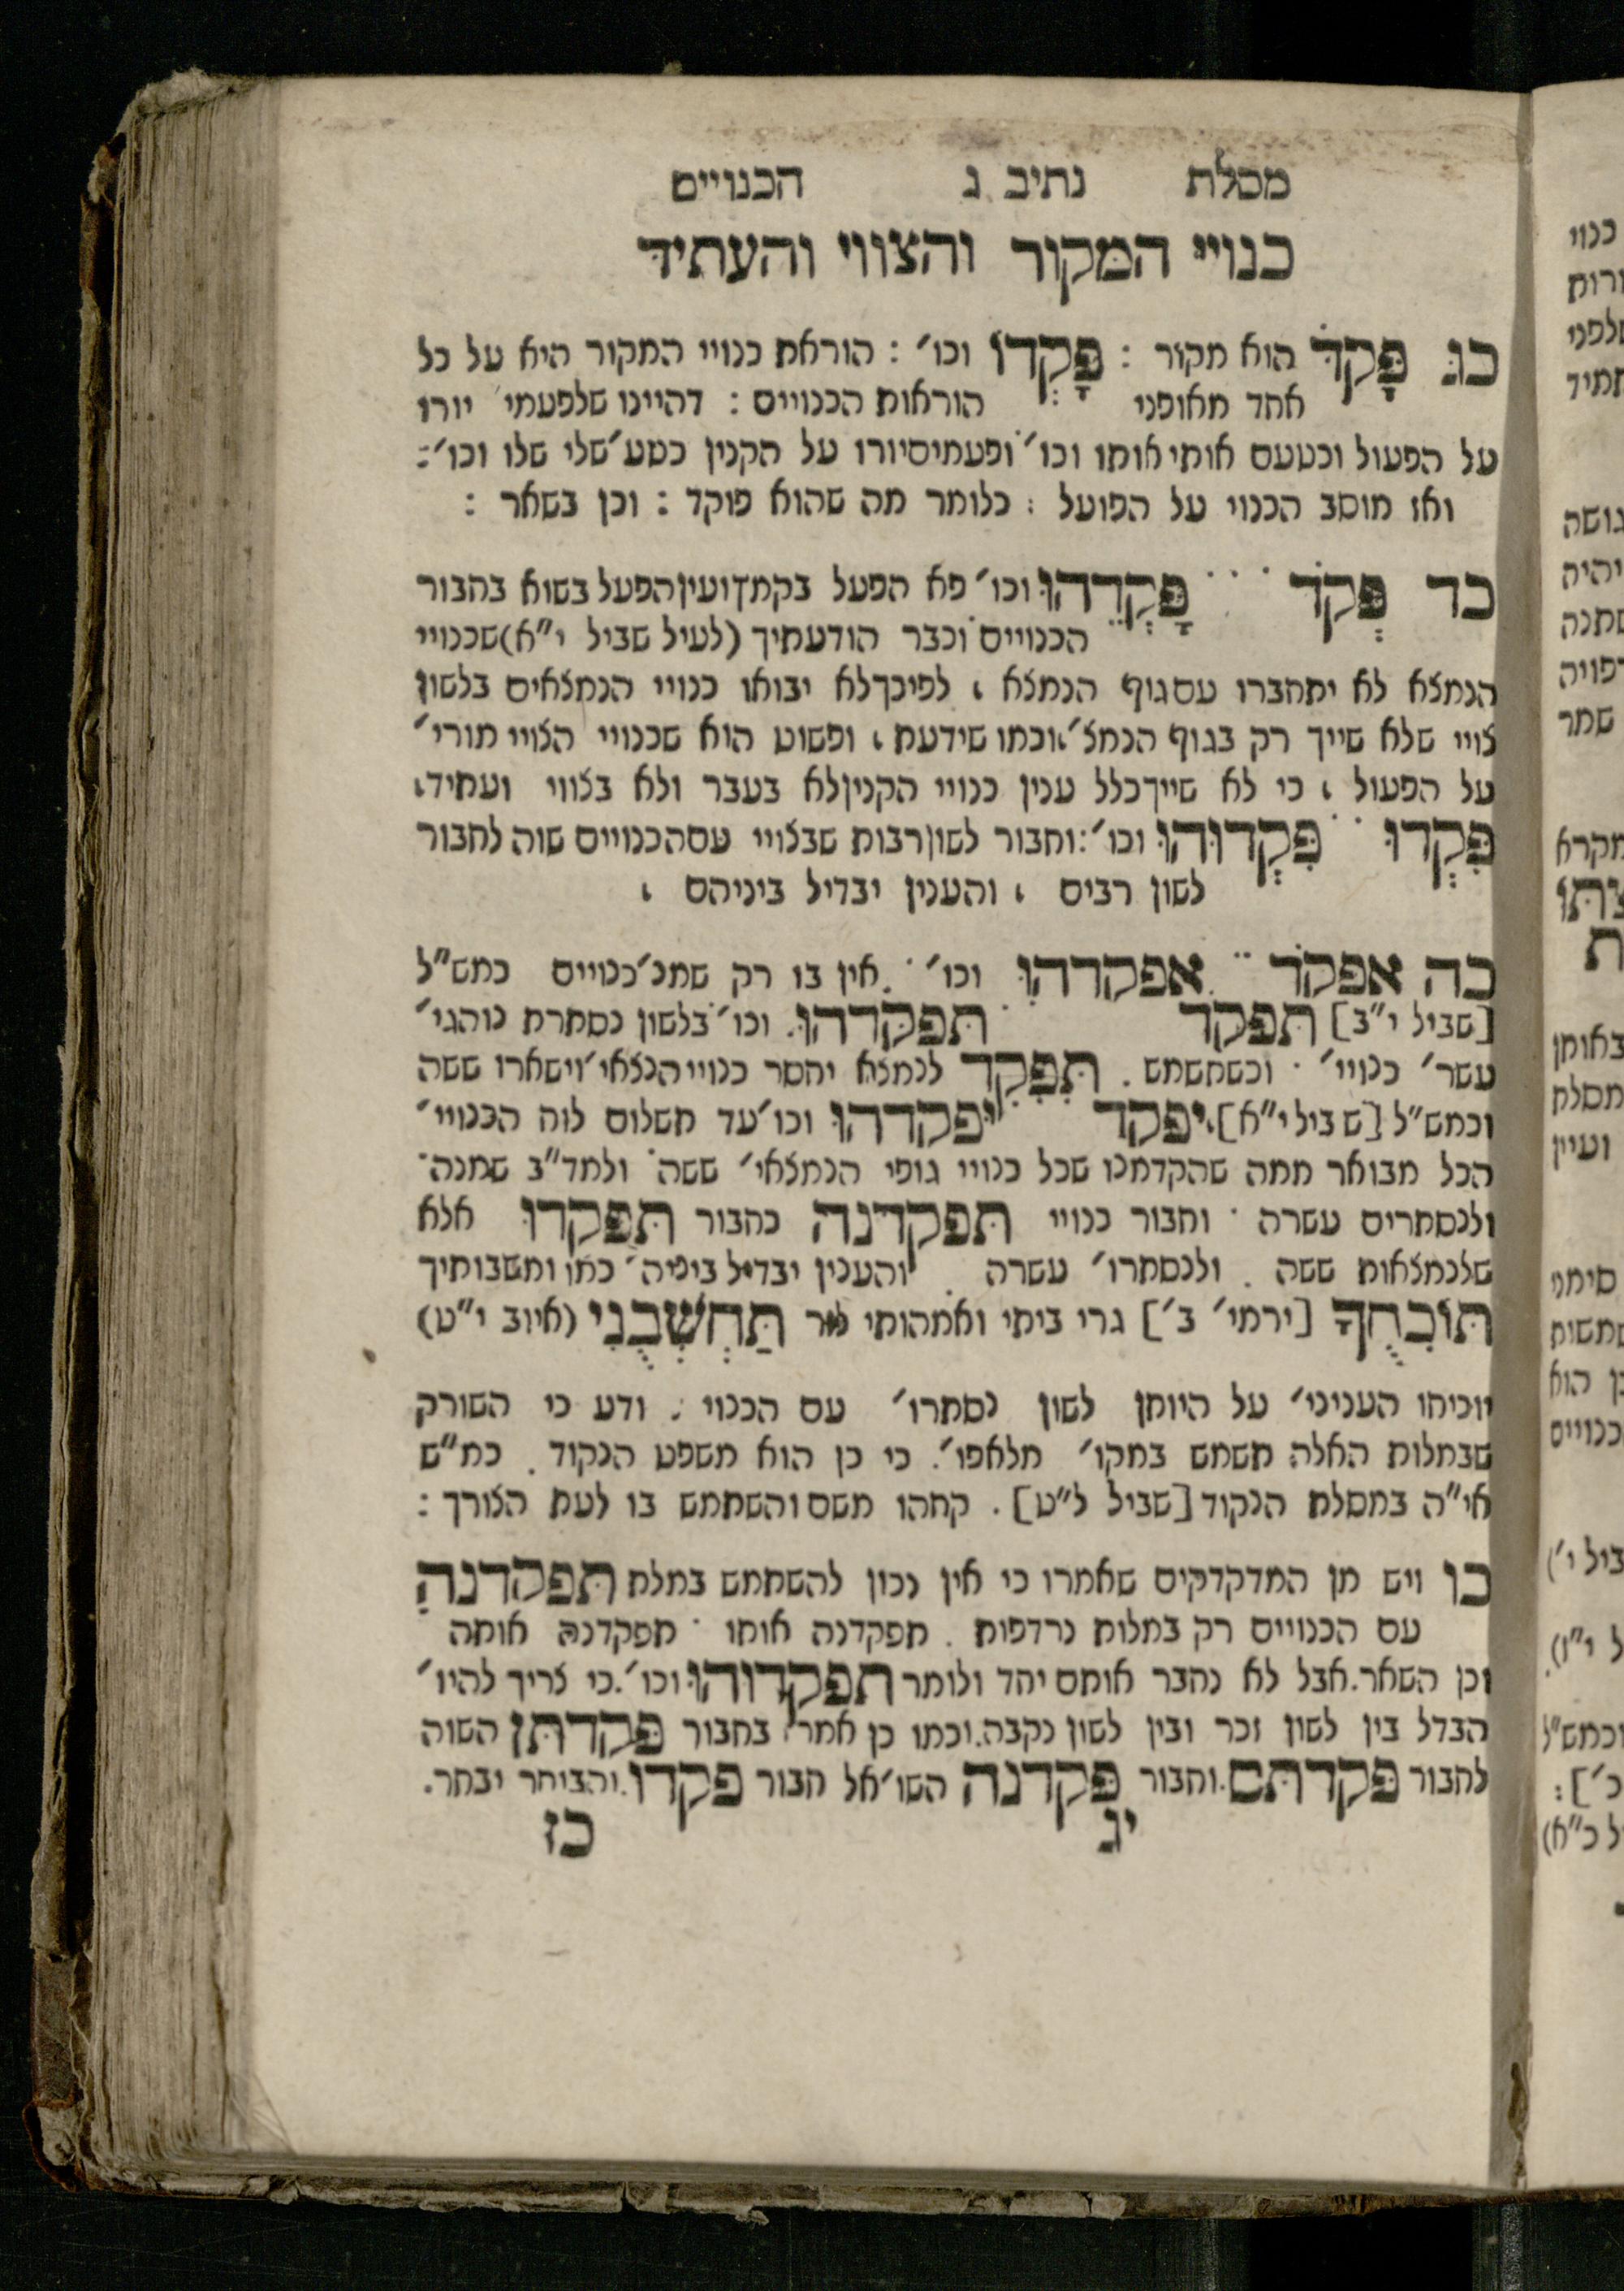 מסלת נתיב ג הכנויים
כנויי המקור והצווי והעתיד
כג פָּקֹד הוא מקור : פָּקְדוֹ וכו׳ : הוראת כנויי המקור היא על כל
אחד מאופני הוראות הכנויים : דהיינו שלפעמי׳ יורו
על הפעול וכטעם אותי אותו וכו׳ ופעמיסיורו על הקנין כטע׳ שלי שלו וכו׳ :
ואז מוסב הכנוי על הפועל : כלומר מה שהוא פוקד : וכן בשאר :
כד פְּקֹד פָּקְדֵהוּ וכו׳ פא הפעל בקמץ ועין הפעל בשוא בחבור
הכנויים וכבר הודעתיך (לעיל שביל י״א) שכנויי
הנמצא לא יתחברו עם גוף הנמצא , לפיכך לא יבואו כנויי הנמצאים בלשון
צווי שלא שייך רק בגוף הנמצ׳ , וכמו שידעת , ופשוט הוא שכנויי הצויי תורי׳
על הפעול , כי לא שייך כלל ענין כנויי הקנין לא בעבר ולא בצווי ועתיד ,
פִּקְדוּ פִּקְדוּהוּ וכו׳ : וחבור לשון רבות שבצויי עם הכנויים שוה לחבור
לשון רבים , והענין יבדיל ביניהם ,
כה אפקֹד אפקדהוּ וכו׳ . אין בו רק שמנ׳ כנויים כמש״ל
[שביל י״ב] תּפקד תּפקדהוּ . וכו׳ בלשון נסתרת נוהגי׳
עשר׳ כנויי׳ . וכשתשמש . תִּפְקֹד לנמצא יחסר כנויי הנצאי׳ וישארו ששה
וכמש״ל [שביל י״א] , יפקד יפקדהוּ וכו׳ עד תשלום לוח הכנויי׳
הכל מבואר ממה שהקדמנו שכל כנויי גופי הנמצאי׳ ששה ולמד״ב שמנה
ולנסתרים עשרה . וחבור כנויי תּפקדנה כחבור תּפקדוּ אלא
שלנמצאות ששה . ולנסתרו׳ עשרה . והענין יבדיל ביניה׳ כמו ומשבותיך
תּוֹכִחֻךָ [ירמי׳ ב׳] גרי ביתי ואמהותי לזר תַּחְשְׁבֻנִי (איוב י״ט)
יוכיחו העניני׳ על היותן לשון נסתרו׳ עם הכנוי . ודע כי השורק
שבמלות האלה תשמש במקו׳ מלאפו׳ . כי כן הוא משפט הנקוד . כמ״ש
אי״ה במסלת הנקוד [שביל ל״ט] . קחהו משם והשתמש בו לעת הצורך :
כו ויש מן המדקדקים שאמרו כי אין נכון להשתמש במלת תּפקדנה
עם הכנויים רק במלות נרדפות . תפקדנה אותו . תפקדנה אותה
וכן השאר . אבל לא נחבר אותם יחד ולומר תפקדוהוּ וכו׳ . כי צריך להיו׳
הבדל בין לשון זכר ובין לשון נקבה . וכמו כן אמרו בחבור פּקדתּן השוה
לחבור פּקדתּם . וחבור פּקדנה השו׳ אל חבור פקדו . והבוחר יבחר .
יג כז